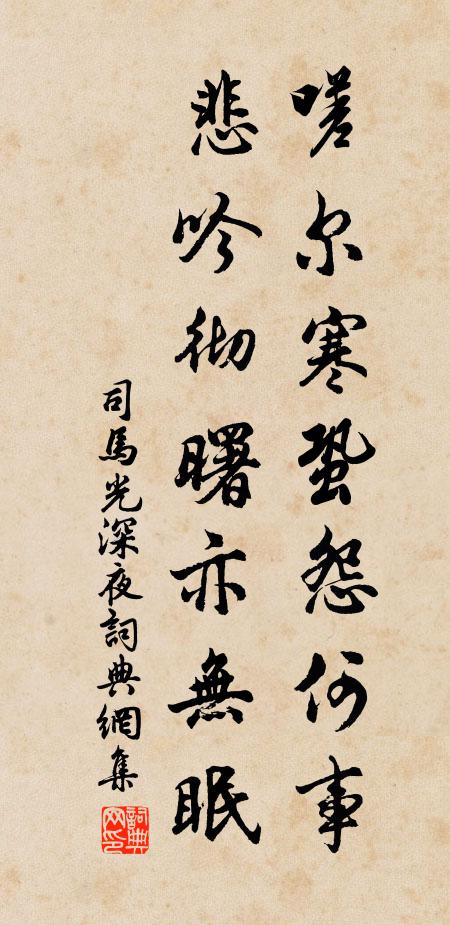 嗟尔寒蛩怨何事
悲吟彻曙亦無眠
司馬光深夜詞典網集
詞典网印